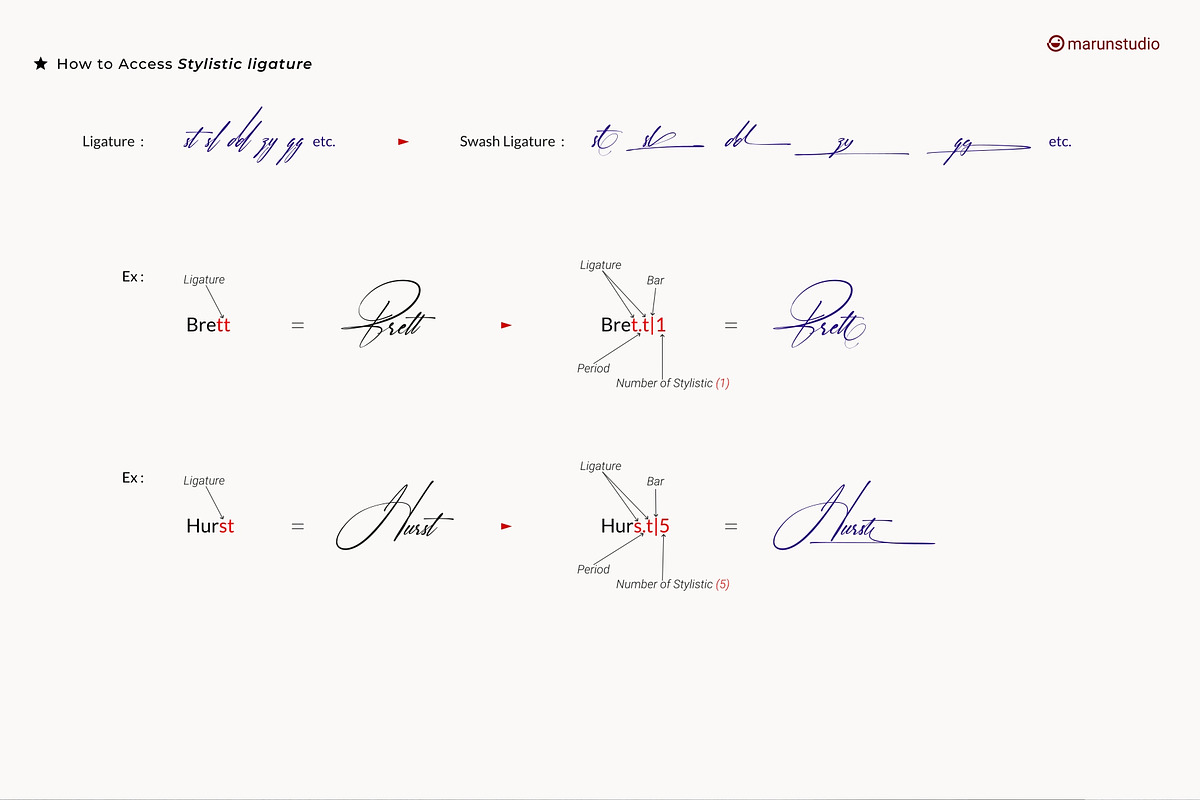 marunstudio
★ How to Access Stylistic ligature
Ligature : st sl dd zy gg etc. ► Swash Ligature : st sl dd zy gg etc.
Ex :
Ligature
Brett = Brett
►
Ligature
Bar
Bret.t|1 = Brett
Period
Number of Stylistic (1)
Ex :
Ligature
Hurst = Hurst
►
Ligature
Bar
Hurs.t|5 = Hurst
Period
Number of Stylistic (5)